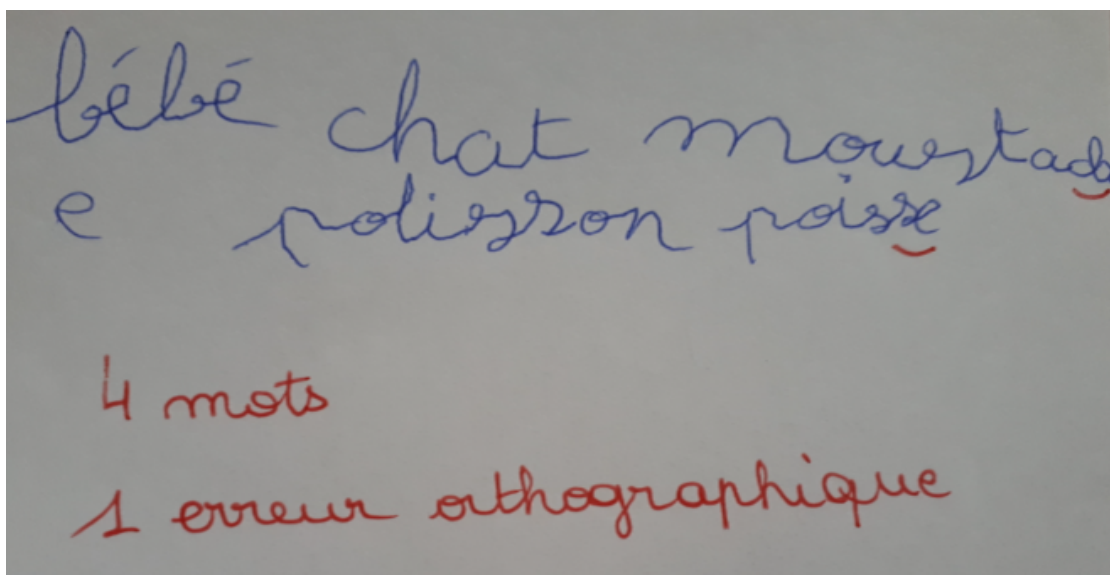 bébé chat
e polisson poisse
4 mots
1 erreur orthographique